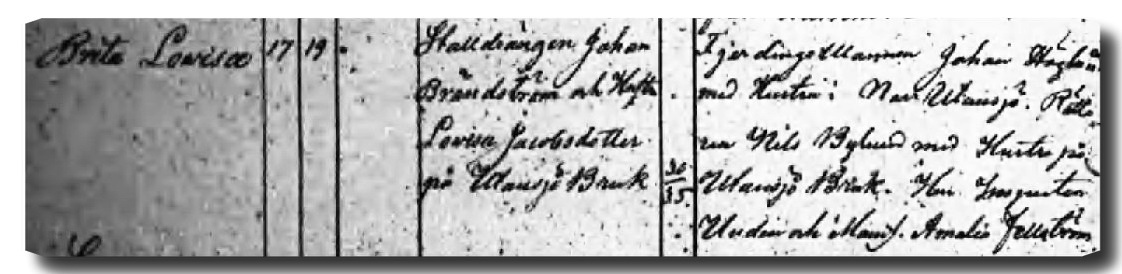 Brita Lovisa 17 19
Stalldrängen Johan
Brändström och Hust
Lovisa Jacobsdotter
på Utansjö Bruk
30
35
Fjerdingsmannen Johan Höglund
med Hustru i Utansjö. Rätta-
ren Nils Bylund med Hustr på
Utansjö Bruk. Hr. Inspector
och Mams. Amalia Fellström